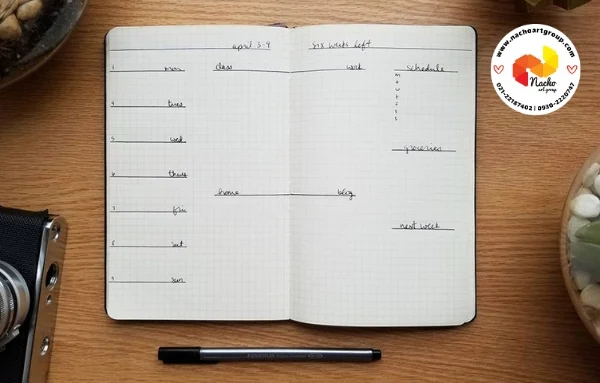 april 3-9
six weeks left
3 mon
4 tues
5 wed
6 thurs
7 fri
8 sat
9 sun
class
work
home
blog
schedule
m
t
w
t
f
s
s
groceries
next week
www.nachoartgroup.com
Nacho
art group
021-22187402 | 0936-2220747